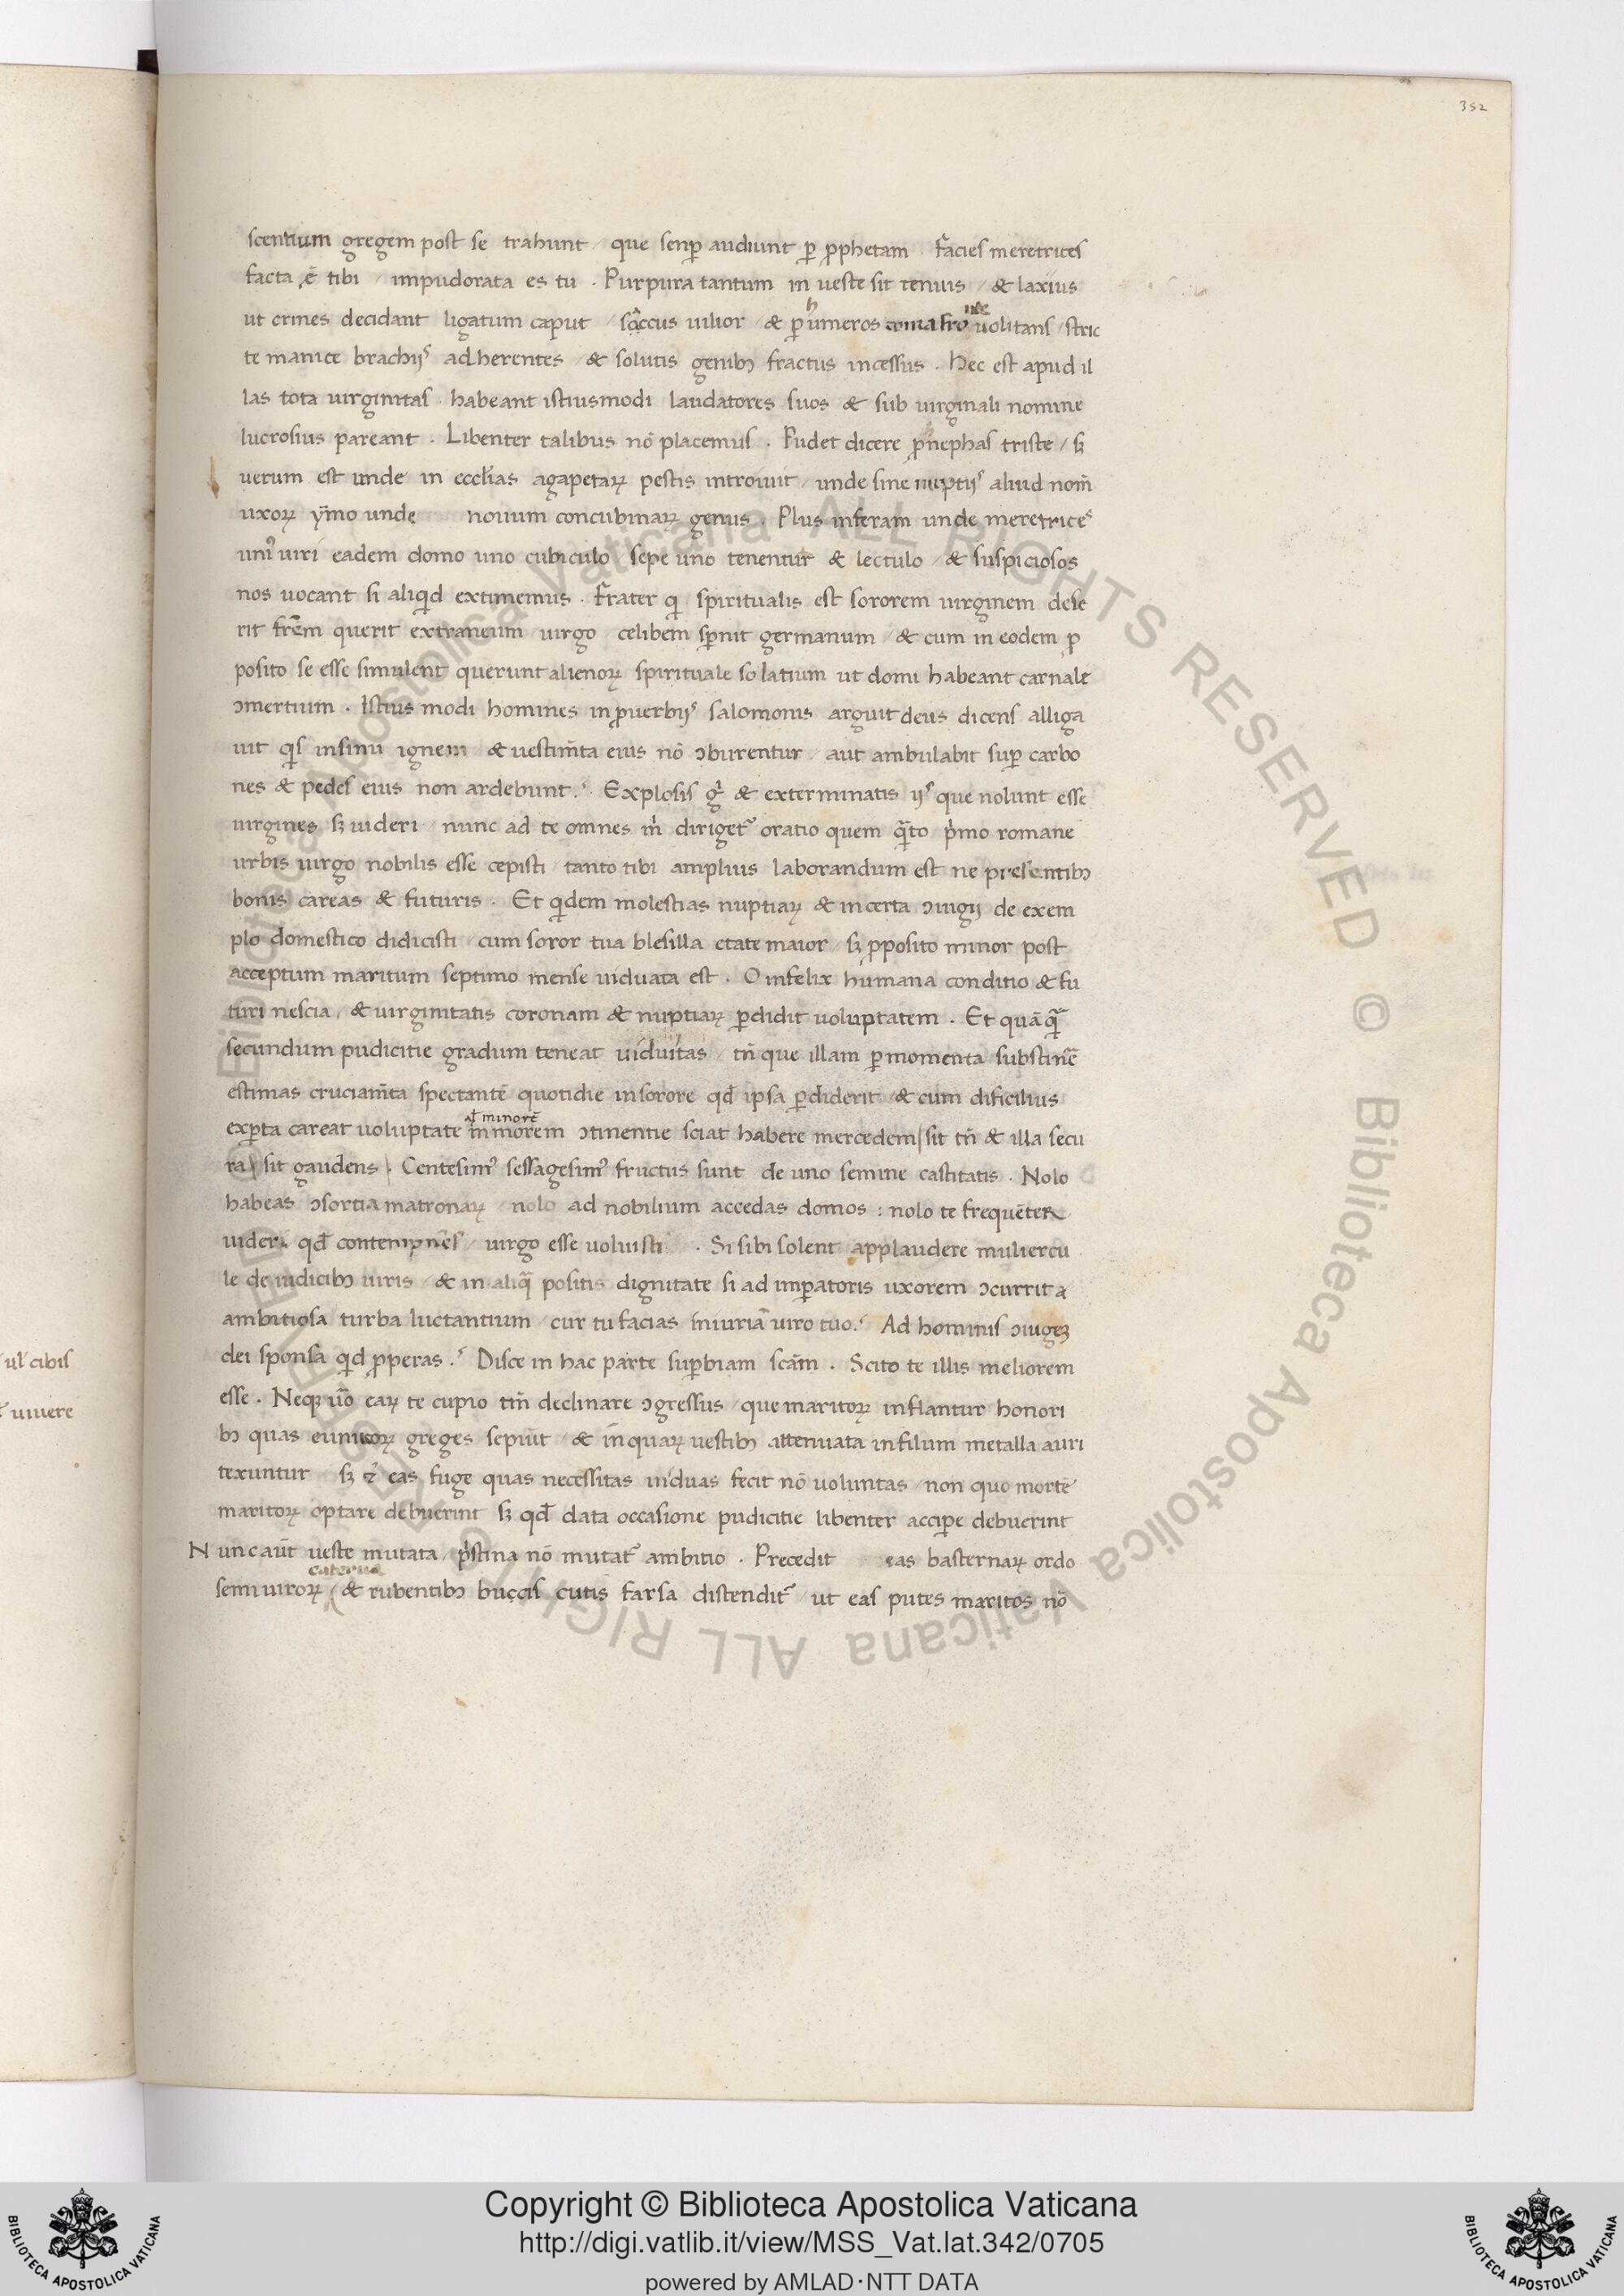 352
scentium gregem post se trahunt / que senp̱ audiunt p̱ ꝓphetam . Facies meretrices
facta ē tibi / impudorata es tu . Purpura tantum in ueste sit tenuis / & laxius
ut crines decidant ligatum caput / soccus uilior / & p̱ humeros uolitans / stric
te manice brachijs adherentes / & solutis genibꝫ fractus incessus . Hec est apud il
las tota uirginitas . habeant istiusmodi laudatores suos & sub uirginali nomine
lucrosius pareant . Libenter talibus nō placemus . Pudet dicere ꝓ nephas triste / sꝫ
uerum est unde in eccľias agapetaꝝ pestis introiuit / unde sine nuptijs aliud nom̄
uxoꝝ ỹmo unde nouum concubinaꝝ genus . Plus inferam unde meretrices
uniꝰ uiri eadem domo uno cubiculo / sepe uno tenentur & lectulo / & suspiciosos
nos uocant si aliqid extimemus . Frater qi spiritualis est sororem uirginem dese
rit frēm querit extraneum / uirgo / celibem sp̱nit germanum / & cum in eodem ꝓ
posito se esse simulent querunt alienoꝝ spirituale solatium ut domi habeant carnale
ↄmertium . Istius modi homines in ꝓuerbijs salomonis arguit deus dicens alliga
uit qis insinu ignem / & uestim̄ta eius nō ↄburentur / aut ambulabit sup̱ carbo
nes & pedes eius non ardebunt ? Explosis gͥ & exterminatis ijs que nolunt esse
uirgines sꝫ uideri / nunc ad te omnes m̊ dirigetᷣ oratio quem qᷓto pͥmo romane
urbis uirgo nobilis esse cepisti / tanto tibi amplius laborandum est ne presentibꝫ
bonis careas & futuris . Et qidem molestias nuptiaꝝ & incerta ↄiugij de exem
plo domestico didicisti / cum soror tua blesilla etate maior / sꝫ ꝓposito minor post
acceptum maritum septimo mense uiduata est . O infelix humana conditio & fu
turi nescia / & uirginitatis coronam & nuptiaꝝ p̱didit uoluptatem . Et quāqᷓ
secundum pudicitie gradum teneat uiduitas / tn̄ que illam p̱ momenta substinē
estimas cruciam̄ta spectantē quotidie insorore qđ ipsa p̱diderit / & cum dificilius
exp̱ta careat uoluptate minorem ↄtinentie sciat habere mercedem / sit tn̄ & illa secu
ał minorē
ra / sit gaudens . Centesimꝰ sessagesimꝰ fructus sunt de uno semine castitatis . Nolo
habeas ↄsortia matronaꝝ / nolo ad nobilium accedas domos : nolo te frequēter
uideri qđ contempnēs / uirgo esse uoluisti . Si sibi solent applaudere muliercu
le de iudicibꝫ uiris / & in aliqᷓ positis dignitate si ad imp̱atoris uxorem ↄcurrit a
ambitiosa turba luctantium / cur tu facias iniuriā uiro tuo ? Ad hominis ↄiugeꝫ
dei sponsa qid ꝓperas ? Disce in hac parte sup̱biam scām . Scito te illis meliorem
esse . Neqꝫ ūo eaꝝ te cupio tm̄ declinare ↄgressus / que maritoꝝ inflantur honori
bꝫ quas eunucoꝝ greges sepiūt / & in quaꝝ uestibꝫ attenuata infilum metalla auri
texuntur / sꝫ & eas fuge quas necessitas uiduas fecit nō uoluntas / non quo mortē
maritoꝝ optare debuerint sꝫ qđ data occasione pudicitie libenter accip̱e debuerint
Nunc aūt ueste mutata / pͥstina nō mutatᷣ ambitio . Precedit eas basternaꝝ ordo
caterua
semiuiroꝝ / & rubentibꝫ buccis cutis farsa distenditᷣ / ut eas putes maritos nō
uľ cibis
uiuere
© Biblioteca Apostolica Vaticana ALL RIGHTS RESERVED
© Biblioteca Apostolica Vaticana ALL RIGHTS RESERVED
Copyright © Biblioteca Apostolica Vaticana
http://digi.vatlib.it/view/MSS_Vat.lat.342/0705
powered by AMLAD·NTT DATA
BIBLIOTECA APOSTOLICA VATICANA
BIBLIOTECA APOSTOLICA VATICANA